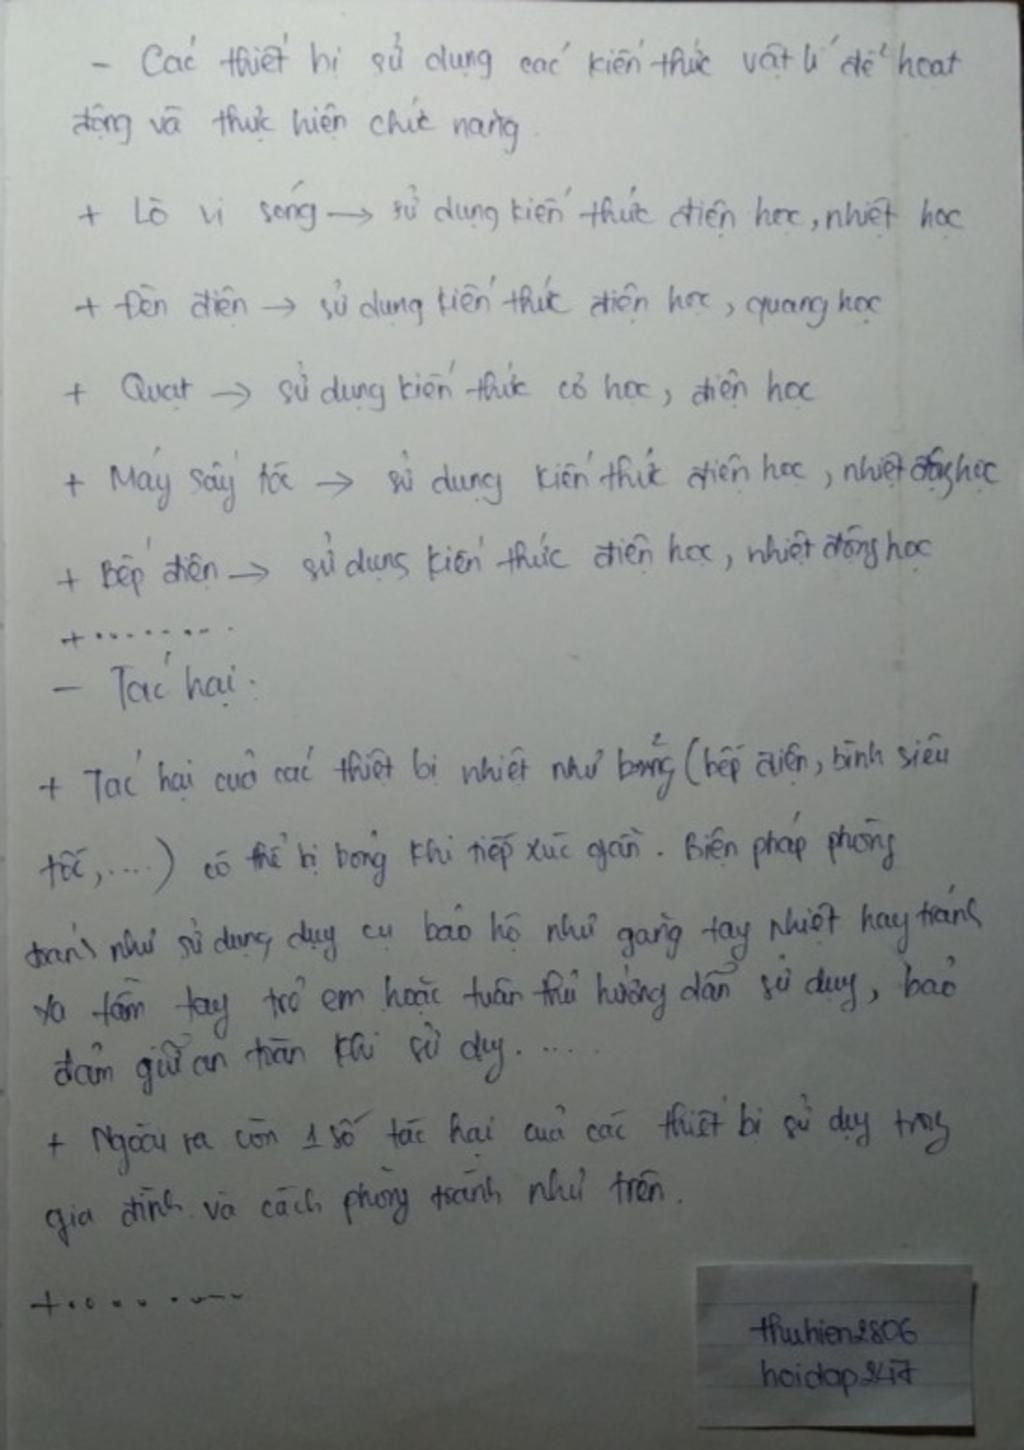 - Các thiết bị sử dụng các kiến thức vật lí để hoạt
động và thực hiện chức năng.
+ Lò vi sóng → sử dụng kiến thức điện học, nhiệt học
+ Đèn điện → sử dụng kiến thức điện học, quang học
+ Quạt → sử dụng kiến thức cơ học, điện học
+ Máy sấy tóc → sử dụng kiến thức điện học, nhiệt động học
+ Bếp điện → sử dụng kiến thức điện học, nhiệt động học
+ ........
- Tác hại:
+ Tác hại của các thiết bị nhiệt như bỏng (bếp điện, bình siêu
tốc,....) có thể bị bỏng khi tiếp xúc gần. Biện pháp phòng
tránh như sử dụng dụng cụ bảo hộ như găng tay nhiệt hay tránh
xa tầm tay trẻ em hoặc tuân thủ hướng dẫn sử dụng, bảo
đảm giữ an toàn khi sử dụng.....
+ Ngoài ra còn 1 số tác hại của các thiết bị sử dụng trong
gia đình và cách phòng tránh như trên.
+ ........
thuhien2806
hoidap247